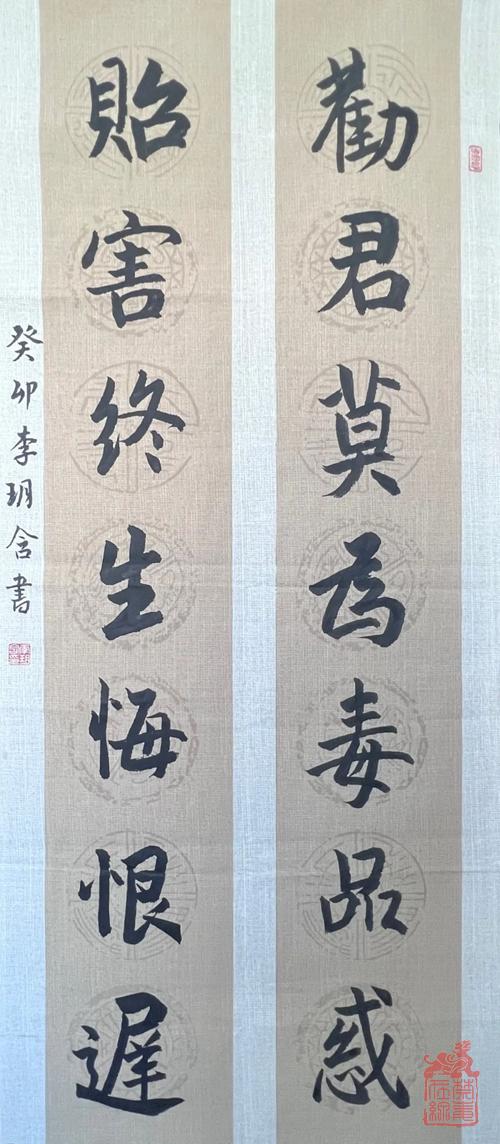 勸君莫为毒品惑
貽害終生悔恨遲
癸卯李玥含書